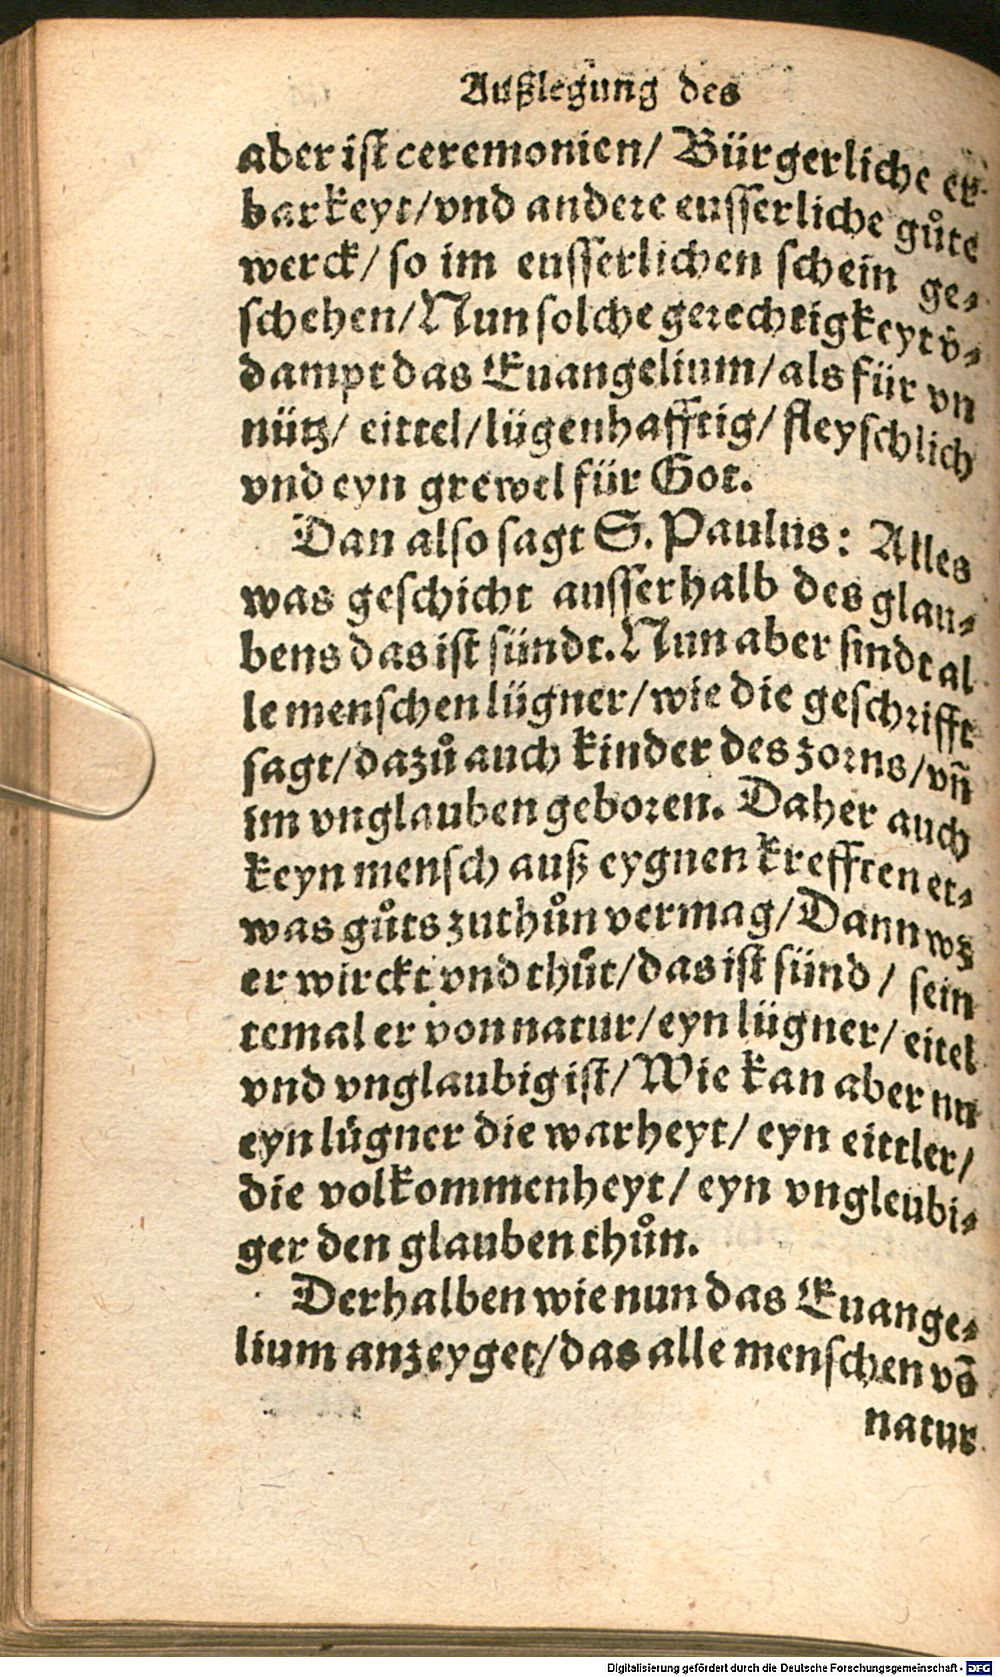 Außlegung des
aber ist ceremonien/ Bürgerliche er
barkeyt/vnd andere eusserliche gůte
werck/ so im eusserlichen schein ge⸗
schehen/Nun solche gerechtigkeyt v̄⸗
dampt das Euangelium/als für vn
nütz/ eittel/lügenhafftig/ fleyschlich
vnd eyn grewel für Got.
Dan also sagt S. Paulus: Alles
was geschicht ausserhalb des glau⸗
bens das ist sündt. Nun aber sindt al
le menschen lügner/wie die geschrifft
sagt/dazů auch kinder des zorns/vñ
im vnglauben geboren. Daher auch
keyn mensch auß eygnen krefften et⸗
was gůts zuthůn vermag/Dann wz
er wirckt vnd thůt/das ist sünd/ sein
temal er von natur/eyn lügner/ eitel
vnd vnglaubig ist/Wie kan aber nu
eyn lügner die warheyt/ eyn eittler/
die volkommenheyt/ eyn vngleubi⸗
ger den glauben thůn.
Derhalben wie nun das Euange⸗
lium anzeyget/das alle menschen vō
natur
Digitalisierung gefördert durch die Deutsche Forschungsgemeinschaft - DFG